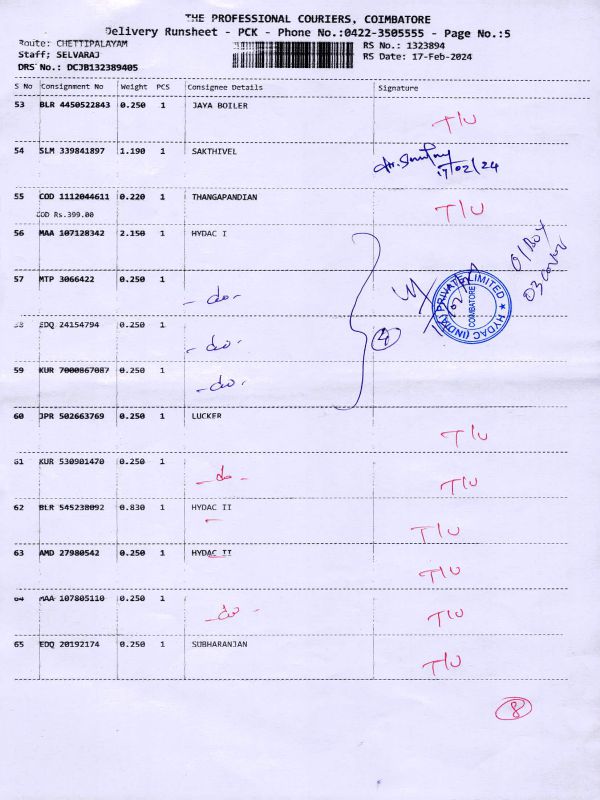 THE PROFESSIONAL COURIERS, COIMBATORE
Delivery Runsheet - PCK - Phone No.:0422-3505555 - Page No.:5
Route: CHETTIPALAYAM RS No.: 1323894
Staff; SELVARAJ RS Date: 17-Feb-2024
DRS No.: DCJB132389405
S No Consignment No Weight PCS Consignee Details Signature
53 BLR 4450522843 0.250 1 JAYA BOILER T/U
54 SLM 339841897 1.190 1 SAKTHIVEL 17/02/24
55 COD 1112044611 0.220 1 THANGAPANDIAN T/U
COD Rs.399.00
56 MAA 107128342 2.150 1 HYDAC I
01 Box
03 cover
57 MTP 3066422 0.250 1 -do-
HYDAC (INDIA) PRIVATE LIMITED
COIMBATORE
58 EDQ 24154794 0.250 1 -do-
4
59 KUR 7000867087 0.250 1 -do-
60 JPR 502663769 0.250 1 LUCKER T/U
61 KUR 530901470 0.250 1 -do- T/U
62 BLR 545238092 0.830 1 HYDAC II T/U
63 AMD 27980542 0.250 1 HYDAC II T/U
64 MAA 107805110 0.250 1 -do- T/U
65 EDQ 20192174 0.250 1 SUBHARANJAN T/U
8